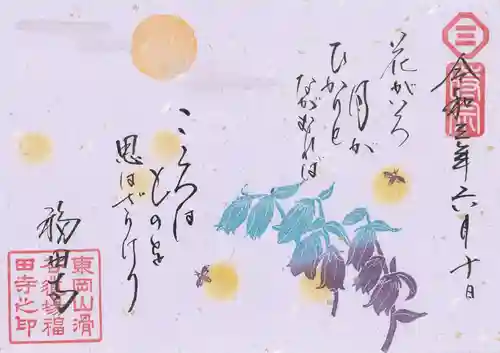 三
令和三年六月十日
花がいろ
月が
ひかりと
ながむれば
こゝろは
ものを
思はざりけり
福田寺
東岡山滑
福
田寺之印